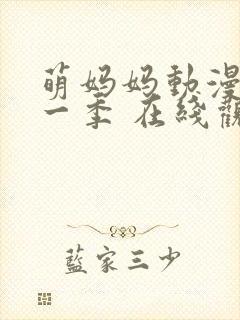 萌妈妈動漫
一季 在线觀
藍家三少